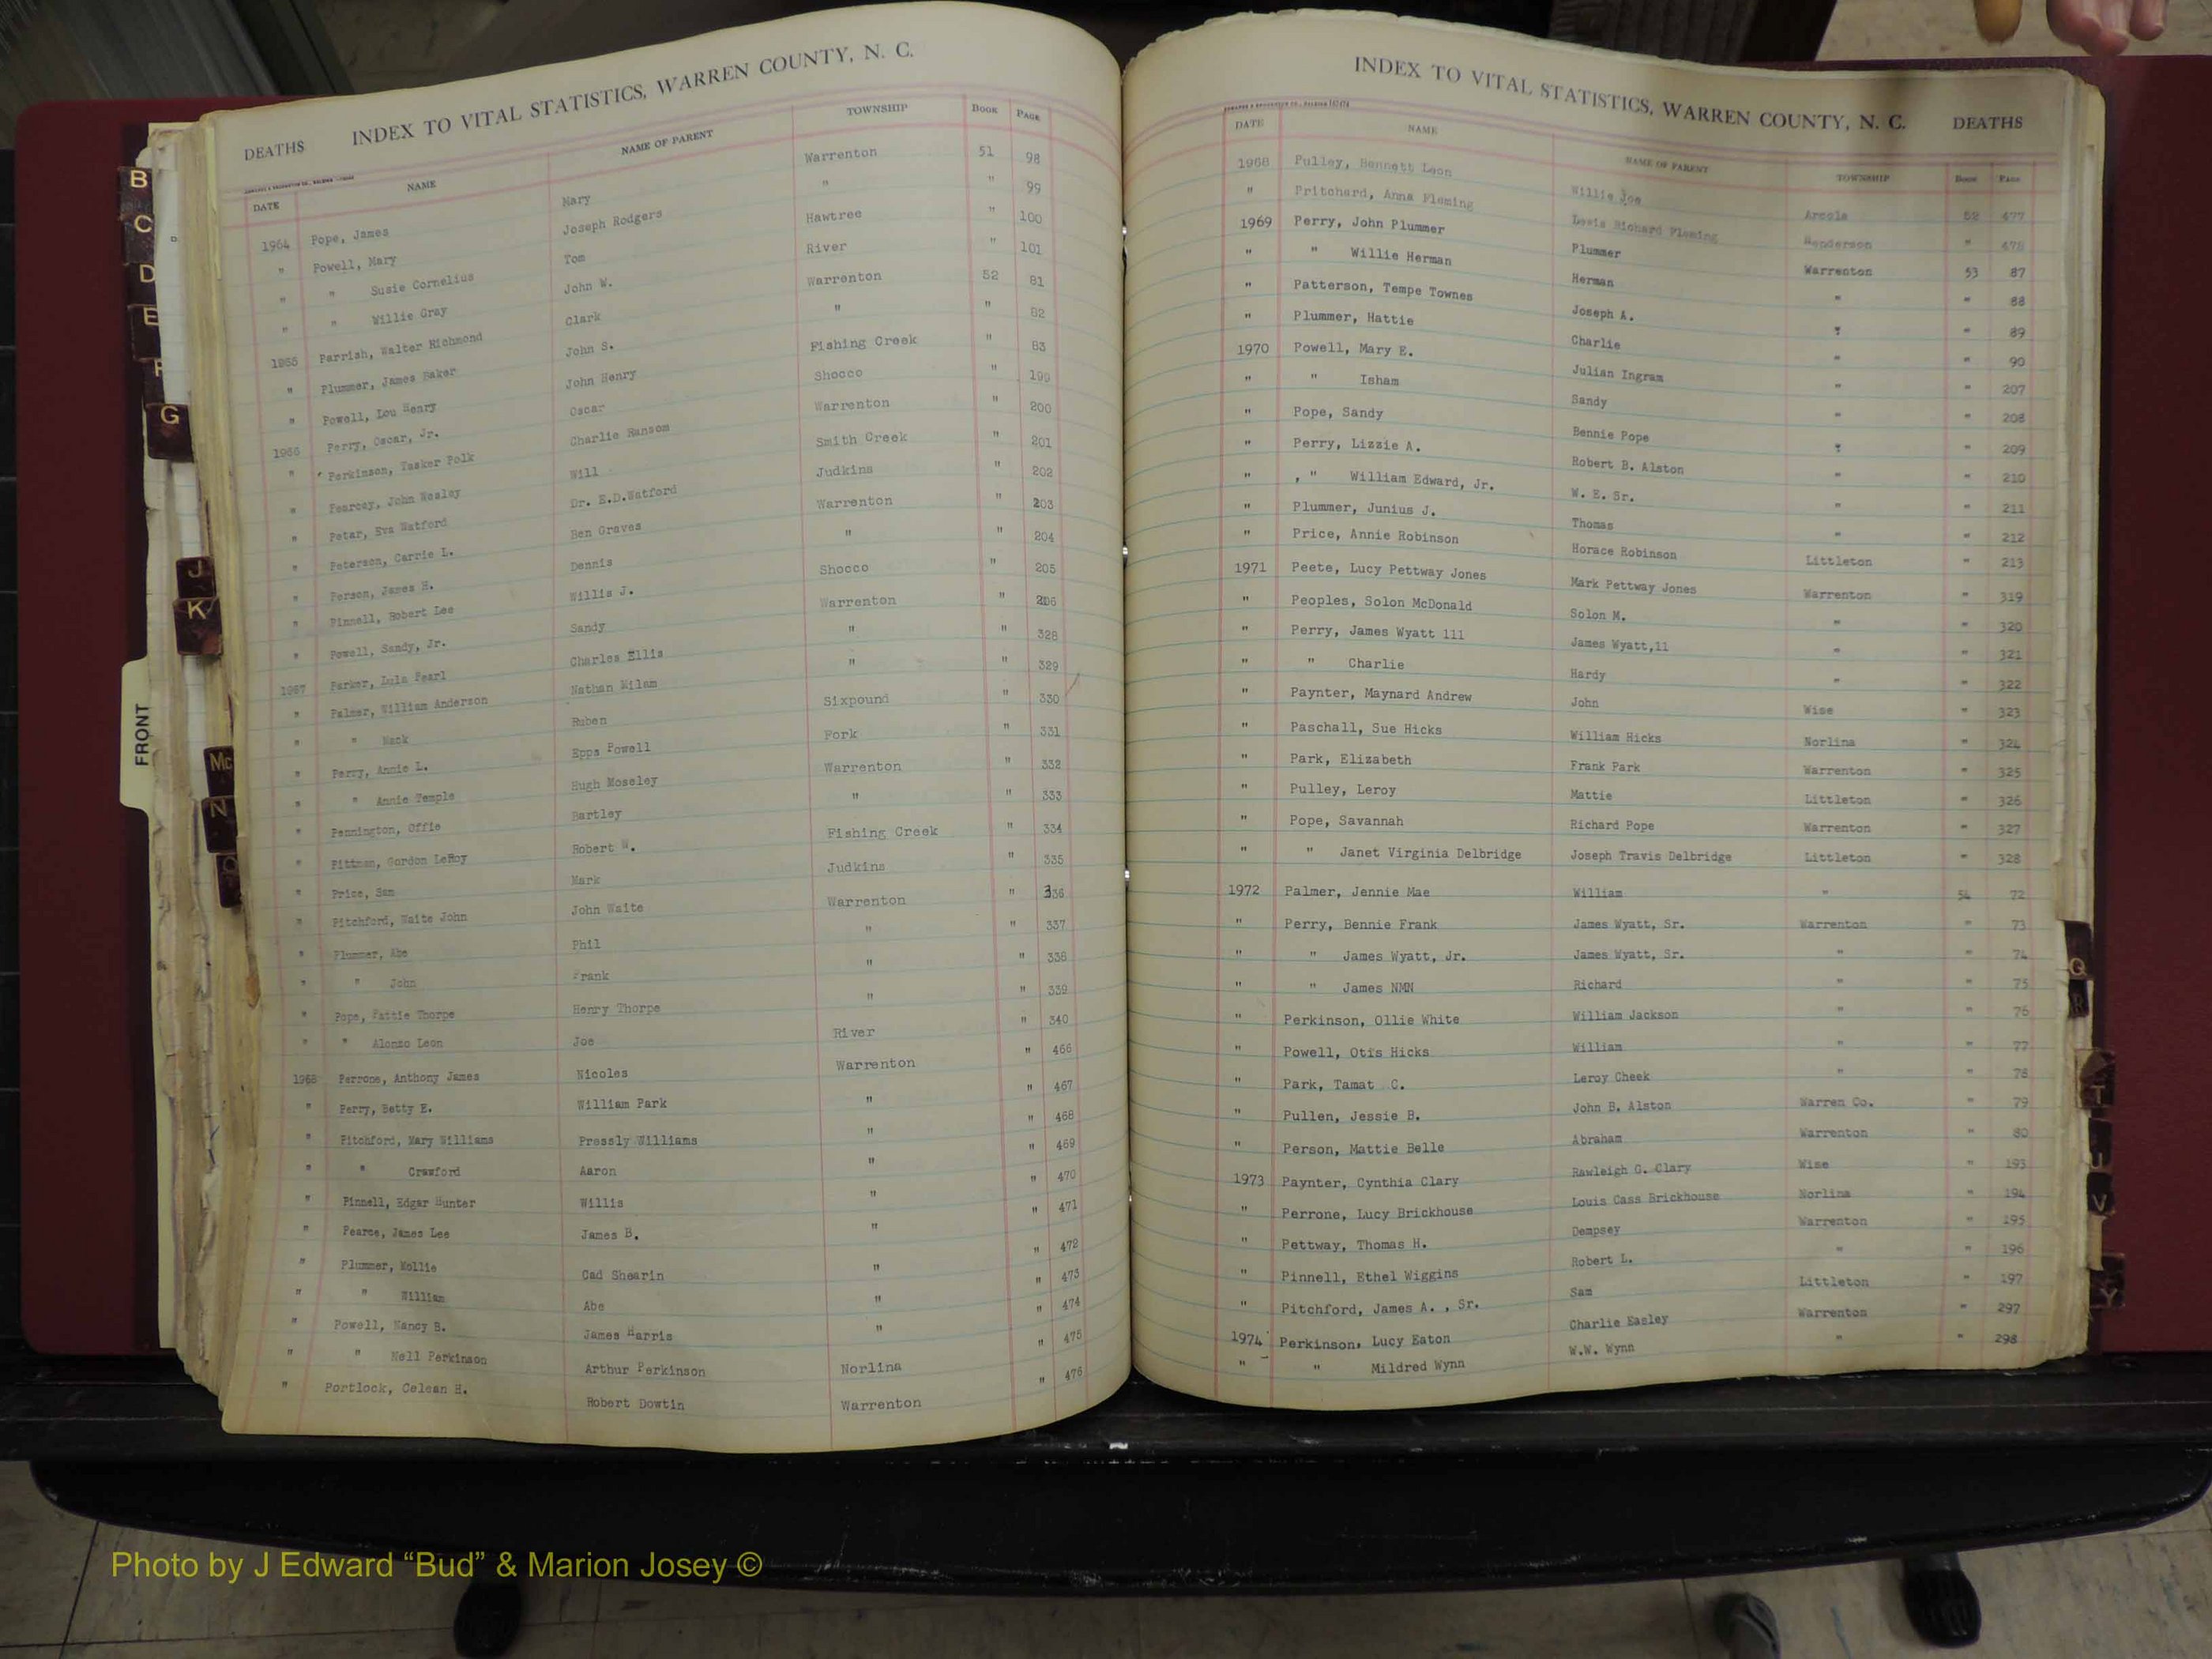 INDEX TO VITAL STATISTICS, WARREN COUNTY, N. C.
DEATHS
DATE NAME NAME OF PARENT TOWNSHIP BOOK PAGE
1964 Pope, James Mary Warrenton 51 98
" Powell, Mary Joseph Rodgers " " 99
" " Susie Cornelius Tom Hawtree " 100
" " Willie Gray John W. River " 101
1965 Parrish, Walter Richmond Clark Warrenton 52 81
" Plummer, James Baker John S. " " 82
" Powell, Lou Henry John Henry Fishing Creek " 83
1966 Perry, Oscar, Jr. Oscar Shocco " 199
" Perkinson, Tasker Polk Charlie Ransom Warrenton " 200
" Pearcey, John Wesley Will Smith Creek " 201
" Petar, Eva Watford Dr. E.D.Watford Judkins " 202
" Peterson, Carrie L. Ben Graves Warrenton " 203
" Person, James H. Dennis " " 204
" Pinnell, Robert Lee Willis J. Shocco " 205
" Powell, Sandy, Jr. Sandy Warrenton " 206
1967 Parker, Lula Pearl Charles Ellis " " 328
" Palmer, William Anderson Nathan Milam " " 329
" " Mack Ruben Sixpound " 330
" Perry, Annie L. Epps Powell Fork " 331
" " Annie Temple Hugh Moseley Warrenton " 332
" Pennington, Offie Bartley " " 333
" Pittman, Gordon LeRoy Robert W. Fishing Creek " 334
" Price, Sam Mark Judkins " 335
" Pitchford, Waite John John Waite Warrenton " 336
" Plummer, Abe Phil " " 337
" " John Frank " " 338
" Pope, Pattie Thorpe Henry Thorpe " " 339
" " Alonzo Leon Joe River " 340
1968 Perrone, Anthony James Nicoles Warrenton " 466
" Perry, Betty E. William Park " " 467
" Pitchford, Mary Williams Pressly Williams " " 468
" " Crawford Aaron " " 469
" Pinnell, Edgar Hunter Willis " " 470
" Pearce, James Lee James B. " " 471
" Plummer, Mollie Cad Shearin " " 472
" " William Abe " " 473
" Powell, Nancy B. James Harris " " 474
" " Nell Perkinson Arthur Perkinson Norlina " 475
" Portlock, Celean H. Robert Dowtin Warrenton " 476
INDEX TO VITAL STATISTICS, WARREN COUNTY, N. C. DEATHS
DATE NAME NAME OF PARENT TOWNSHIP BOOK PAGE
1968 Pulley, Bennett Leon Willie Joe Arcola 52 477
" Pritchard, Anna Fleming Lewis Richard Fleming Henderson " 478
1969 Perry, John Plummer Plummer Warrenton 53 87
" " Willie Herman Herman " " 88
" Patterson, Tempe Townes Joseph A. " " 89
" Plummer, Hattie Charlie " " 90
1970 Powell, Mary E. Julian Ingram " " 207
" " Isham Sandy " " 208
" Pope, Sandy Bennie Pope " " 209
" Perry, Lizzie A. Robert B. Alston " " 210
" , " William Edward, Jr. W. E. Sr. " " 211
" Plummer, Junius J. Thomas " " 212
" Price, Annie Robinson Horace Robinson Littleton " 213
1971 Peete, Lucy Pettway Jones Mark Pettway Jones Warrenton " 319
" Peoples, Solon McDonald Solon M. " " 320
" Perry, James Wyatt 111 James Wyatt,11 " " 321
" " Charlie Hardy " " 322
" Paynter, Maynard Andrew John Wise " 323
" Paschall, Sue Hicks William Hicks Norlina " 324
" Park, Elizabeth Frank Park Warrenton " 325
" Pulley, Leroy Mattie Littleton " 326
" Pope, Savannah Richard Pope Warrenton " 327
" " Janet Virginia Delbridge Joseph Travis Delbridge Littleton " 328
1972 Palmer, Jennie Mae William " 54 72
" Perry, Bennie Frank James Wyatt, Sr. Warrenton " 73
" " James Wyatt, Jr. James Wyatt, Sr. " " 74
" " James NMN Richard " " 75
" Perkinson, Ollie White William Jackson " " 76
" Powell, Otis Hicks William " " 77
" Park, Tamat C. Leroy Cheek " " 78
" Pullen, Jessie B. John B. Alston Warren Co. " 79
" Person, Mattie Belle Abraham Warrenton " 80
1973 Paynter, Cynthia Clary Rawleigh G. Clary Wise " 193
" Perrone, Lucy Brickhouse Louis Cass Brickhouse Norlina " 194
" Pettway, Thomas H. Dempsey Warrenton " 195
" Pinnell, Ethel Wiggins Robert L. " " 196
" Pitchford, James A. , Sr. Sam Littleton " 197
1974 Perkinson, Lucy Eaton Charlie Easley Warrenton " 297
" " Mildred Wynn W.W. Wynn " " 298
B
C
D
E
F
G
J
K
Mc
N
O
FRONT
Q
R
T
U
V
Y
Photo by J Edward “Bud” & Marion Josey ©